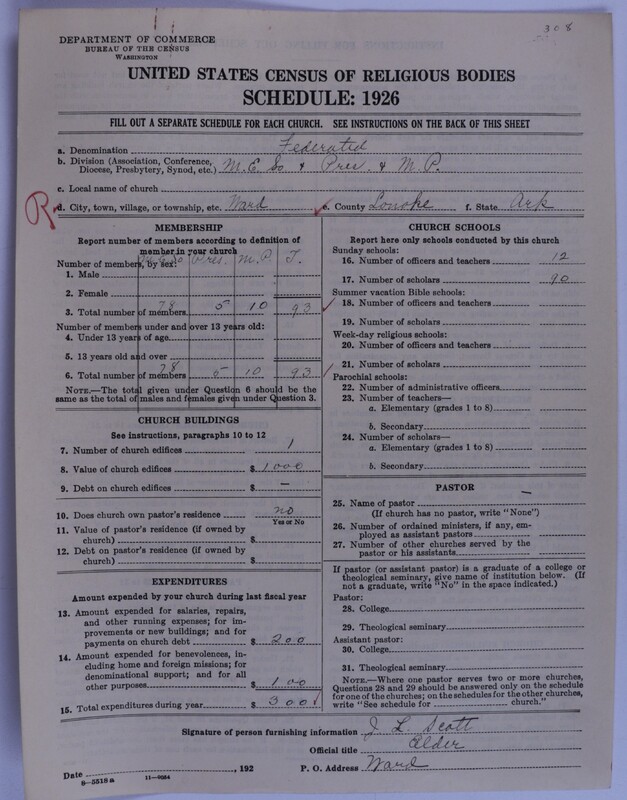 308
DEPARTMENT OF COMMERCE
BUREAU OF THE CENSUS
WASHINGTON
UNITED STATES CENSUS OF RELIGIOUS BODIES
SCHEDULE: 1926
FILL OUT A SEPARATE SCHEDULE FOR EACH CHURCH. SEE INSTRUCTIONS ON THE BACK OF THIS SHEET
a. Denomination Federated
b. Division (Association, Conference, Diocese, Presbytery, Synod, etc.) M.E. So & Pres. & M.P.
c. Local name of church
R d. City, town, village, or township, etc. Ward e. County Lonoke f. State Ark
MEMBERSHIP
Report number of members according to definition of
member in your church
Number of members, by sex: M.E. So Pres. M.P. T.
1. Male
2. Female
3. Total number of members 78 5 10 93
Number of members under and over 13 years old:
4. Under 13 years of age
5. 13 years old and over
6. Total number of members 78 5 10 93
NOTE.—The total given under Question 6 should be the
same as the total of males and females given under Question 3.
CHURCH BUILDINGS
See instructions, paragraphs 10 to 12
7. Number of church edifices 1
8. Value of church edifices $ 1000
9. Debt on church edifices $ —
10. Does church own pastor's residence no
Yes or No
11. Value of pastor's residence (if owned by
church) $
12. Debt on pastor's residence (if owned by
church) $
EXPENDITURES
Amount expended by your church during last fiscal year
13. Amount expended for salaries, repairs,
and other running expenses; for im-
provements or new buildings; and for
payments on church debt $ 200
14. Amount expended for benevolences, in-
cluding home and foreign missions; for
denominational support; and for all
other purposes $ 100
15. Total expenditures during year $ 300
CHURCH SCHOOLS
Report here only schools conducted by this church
Sunday schools:
16. Number of officers and teachers 12
17. Number of scholars 90
Summer vacation Bible schools:
18. Number of officers and teachers
19. Number of scholars
Week-day religious schools:
20. Number of officers and teachers
21. Number of scholars
Parochial schools:
22. Number of administrative officers
23. Number of teachers—
a. Elementary (grades 1 to 8)
b. Secondary
24. Number of scholars—
a. Elementary (grades 1 to 8)
b. Secondary
PASTOR
25. Name of pastor —
(If church has no pastor, write "None")
26. Number of ordained ministers, if any, em-
ployed as assistant pastors
27. Number of other churches served by the
pastor or his assistants
If pastor (or assistant pastor) is a graduate of a college or
theological seminary, give name of institution below. (If
not a graduate, write "No" in the space indicated.)
Pastor:
28. College
29. Theological seminary
Assistant pastor:
30. College
31. Theological seminary
NOTE.—Where one pastor serves two or more churches,
Questions 28 and 29 should be answered only on the schedule
for one of the churches; on the schedules for the other churches,
write "See schedule for church."
Signature of person furnishing information J L Scott
Official title Elder
Date , 192 P. O. Address Ward
8-5518a 11-9024